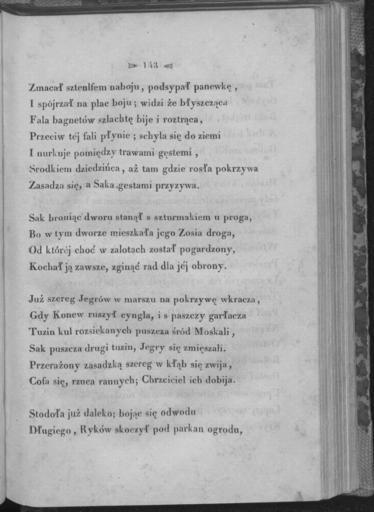 143
Zmacał sztenlfem naboju, podsypał panewkę,
I spójrzał na plac boju; widzi że błyszcząca
Fala bagnetów szlachtę bije i roztrąca,
Przeciw téj fali płynie; schyla się do ziemi
I nurkuje pomiędzy trawami gęstemi,
Srodkiem dziedzińca, aż tam gdzie rosła pokrzywa
Zasadza się, a Saka gestami przyzywa.
Sak broniąc dworu stanął s szturmakiem u proga,
Bo w tym dworze mieszkała jego Zosia droga,
Od którój choć w zalotach został pogardzony,
Kochał ją zawsze, zginąć rad dla jéj obrony.
Już szereg Jegrów w marszu na pokrzywę wkracza,
Gdy Konew ruszył cyngla, i s paszczy garłacza
Tuzin kul rozsiekanych puszcza śród Moskali,
Sak puszcza drugi tuzin, Jegry się zmięszali.
Przerażony zasadzką szereg w kłąb się zwija,
Cofa się, rzuca rannych; Chrzciciel ich dobija.
Stodoła już daleko; bojąc się odwodu
Długiego, Ryków skoczył pod parkan ogrodu,